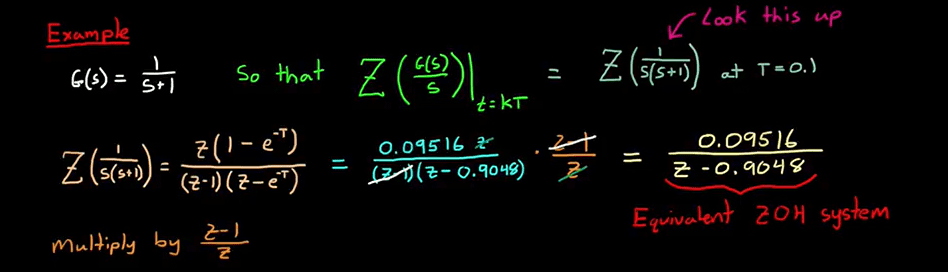 Example
Look this up
G(s) = 1/(s+1) So that Z(G(s)/s)|t=kT = Z(1/(s(s+1))) at T=0.1
Z(1/(s(s+1))) = z(1-e^-T)/((z-1)(z-e^-T)) = 0.09516 z/((z-1)(z-0.9048)) · (z-1)/z = 0.09516/(z-0.9048)
Equivalent ZOH system
Multiply by (z-1)/z